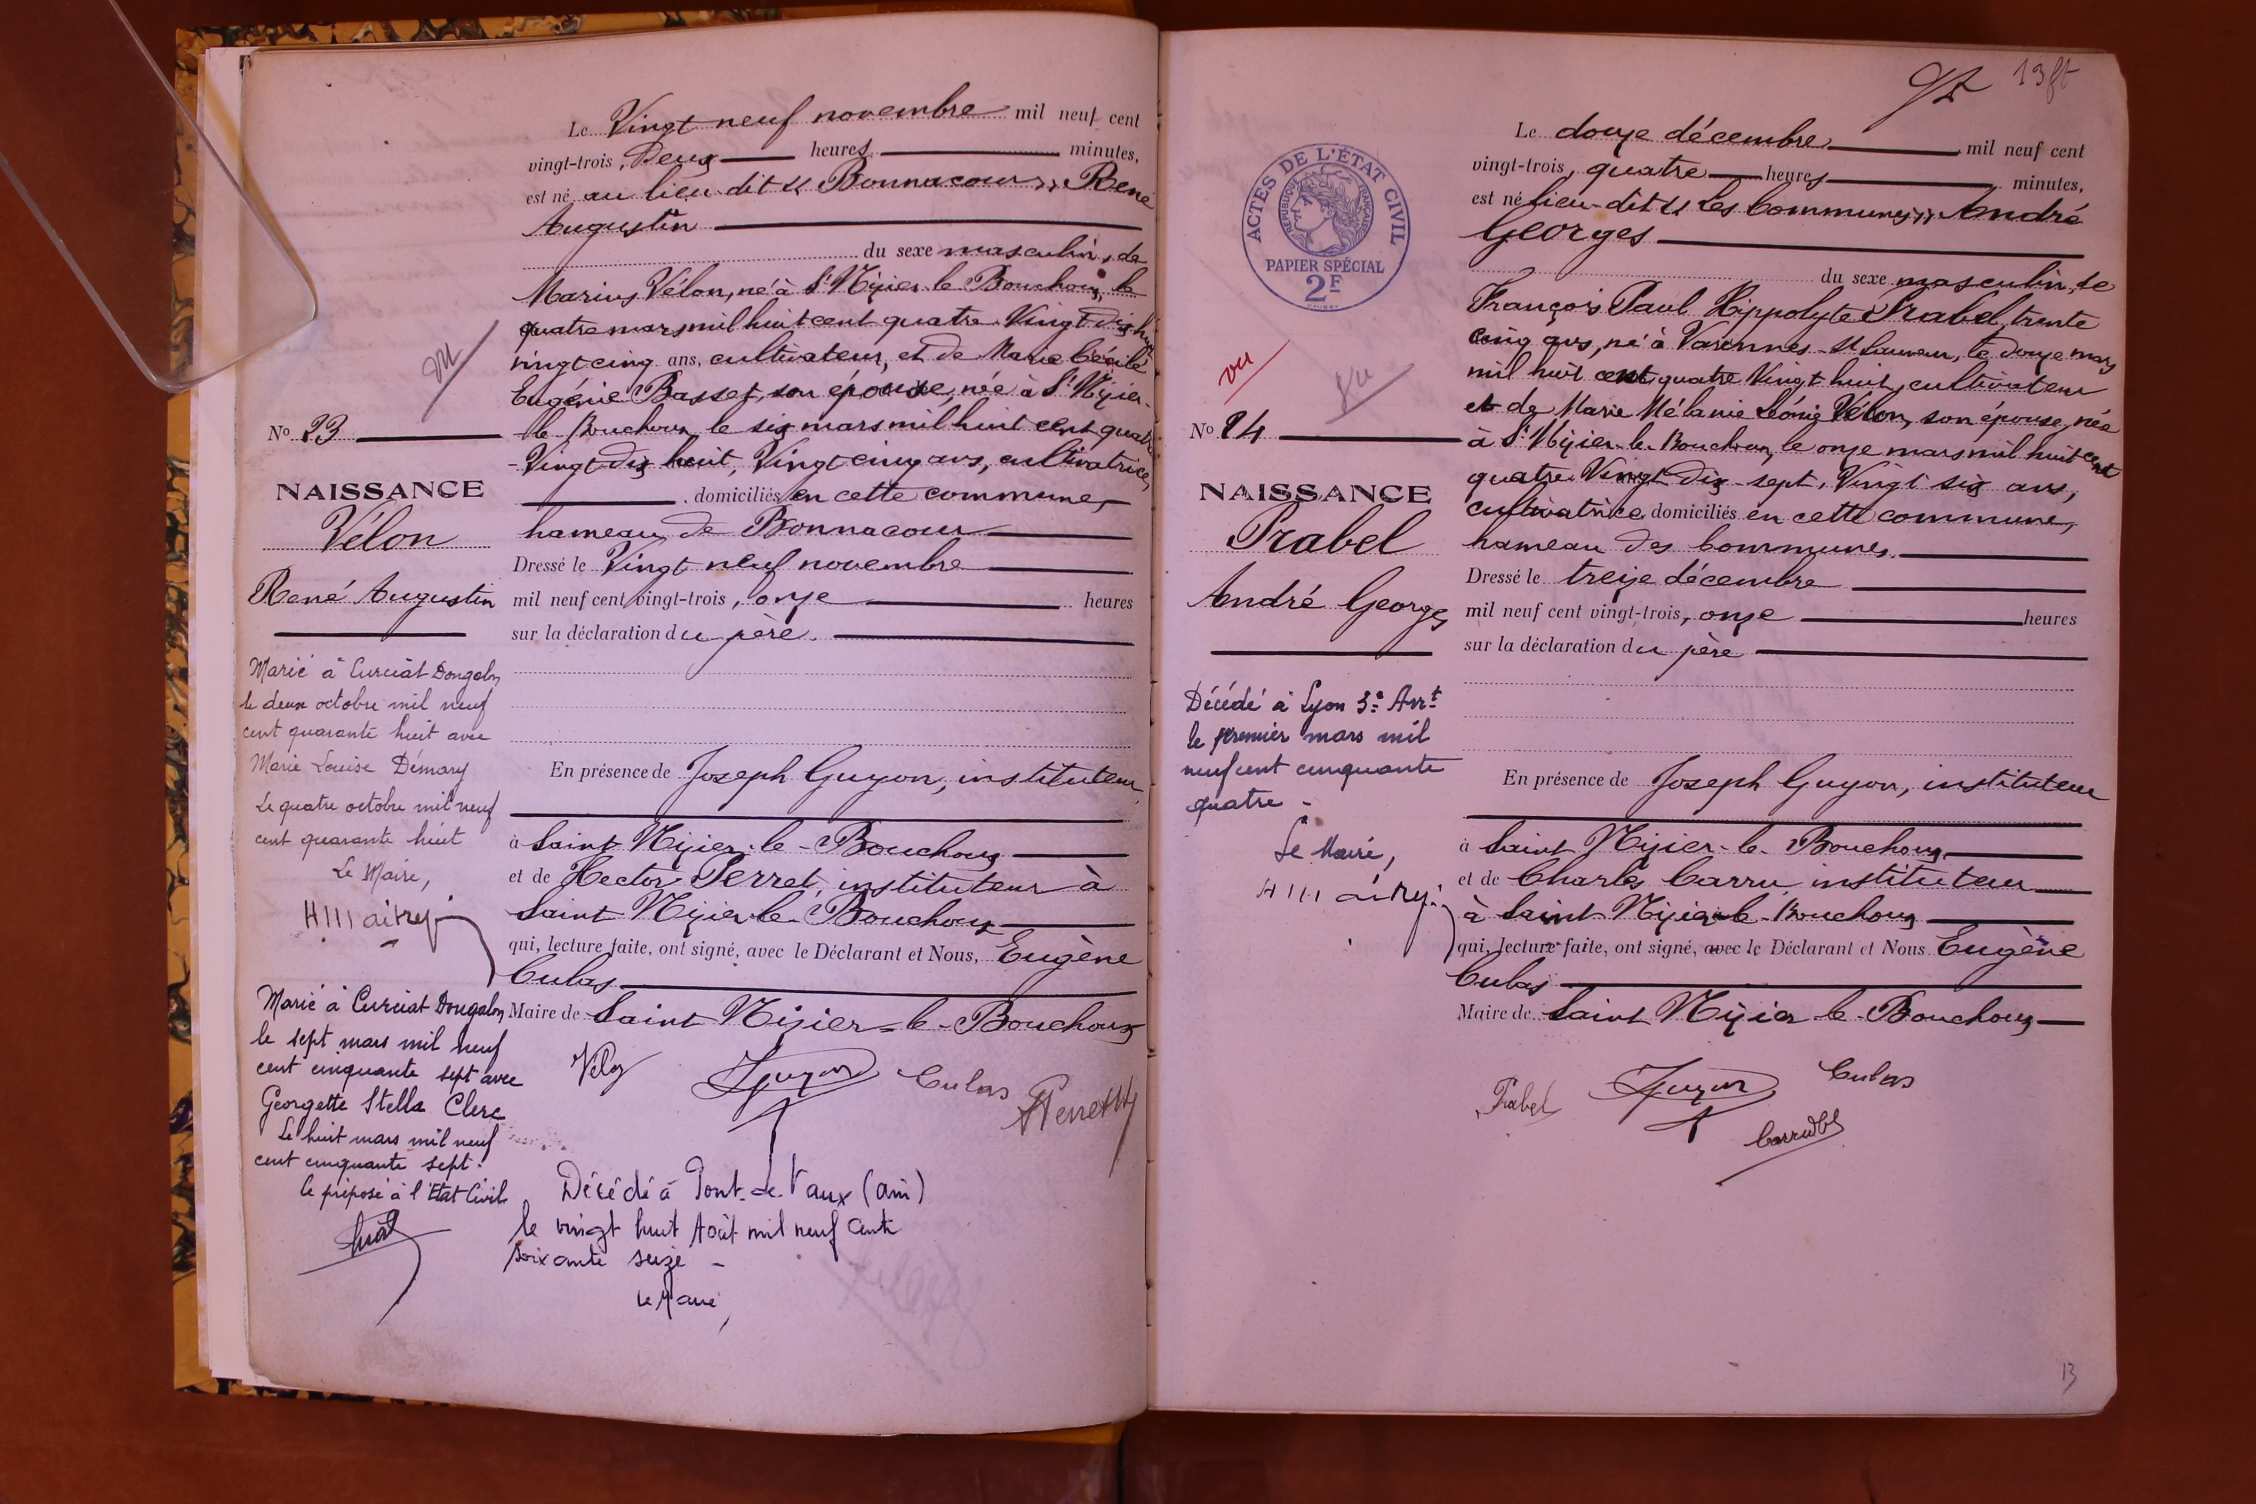 Le Vingt neuf novembre mil neuf cent
vingt-trois, Deux heures minutes,
est né au lieu dit « Bonnacour », René
Augustin
du sexe masculin, de
Marius Vélon, né à St Nizier le Bouchoux, le
quatre mars mil huit cent quatre Vingt dix huit
vingt cinq ans, cultivateur, et de Marie Cécile
Eugénie Basset, son épouse, née à St Nizier-
le Bouchoux le six mars mil huit cent quatre
-Vingt dix huit, Vingt cinq ans, cultivatrice,
domiciliés en cette commune,
hameau de Bonnacour
Dressé le Vingt neuf novembre
mil neuf cent vingt-trois, onze heures
sur la déclaration du père.
En présence de Joseph Guyon, instituteur,
à Saint Nizier-le-Bouchoux
et de Hector Perret, instituteur à
Saint Nizier-le-Bouchoux
qui, lecture faite, ont signé, avec le Déclarant et Nous, Eugène
Cubas
Maire de Saint Nizier-le-Bouchoux
Guyon Cubas
Décédé à Pont-de-Vaux (ain)
le vingt huit Août mil neuf cent
soixante seize -
Le Maire,
vu
No 23
NAISSANCE
Vélon
René Augustin
Marié à Curciat Dongalon
le deux octobre mil neuf
cent quarante huit avec
Marie Louise Démary
Le quatre octobre mil neuf
cent quarante huit
Le Maire,
Marié à Curciat Dongalon
le sept mars mil neuf
cent cinquante sept avec
Georgette Stella Clerc
Le huit mars mil neuf
cent cinquante sept.
le préposé à l'Etat Civil
13
Le douze décembre mil neuf cent
vingt-trois, quatre heures minutes,
est né lieu-dit « Les Communes », André
Georges
du sexe masculin, de
François Paul Hippolyte Prabel, trente
cinq ans, né à Varennes-St Sauveur, le douze mars
mil huit cent quatre Vingt huit, cultivateur
et de Marie Mélanie Léonie Vélon, son épouse, née
à St Nizier-le-Bouchoux, le onze mars mil huit cent
quatre Vingt Dix-sept, Vingt six ans,
cultivatrice domiciliés en cette commune,
hameau des Communes.
Dressé le treize décembre
mil neuf cent vingt-trois, onze heures
sur la déclaration du père
En présence de Joseph Guyon, instituteur
à Saint Nizier-le-Bouchoux
et de Charles Carru, instituteur
à Saint Nizier-le-Bouchoux
qui, lecture faite, ont signé, avec le Déclarant et Nous Eugène
Cubas
Maire de Saint Nizier-le-Bouchoux
Prabel Guyon Cubas
ACTES DE L'ÉTAT CIVIL
RÉPUBLIQUE FRANÇAISE
PAPIER SPÉCIAL
2F
vu
vu
No 24
NAISSANCE
Prabel
André Georges
Décédé à Lyon 3e Arrt
le premier mars mil
neuf cent cinquante
quatre -
Le Maire,
13